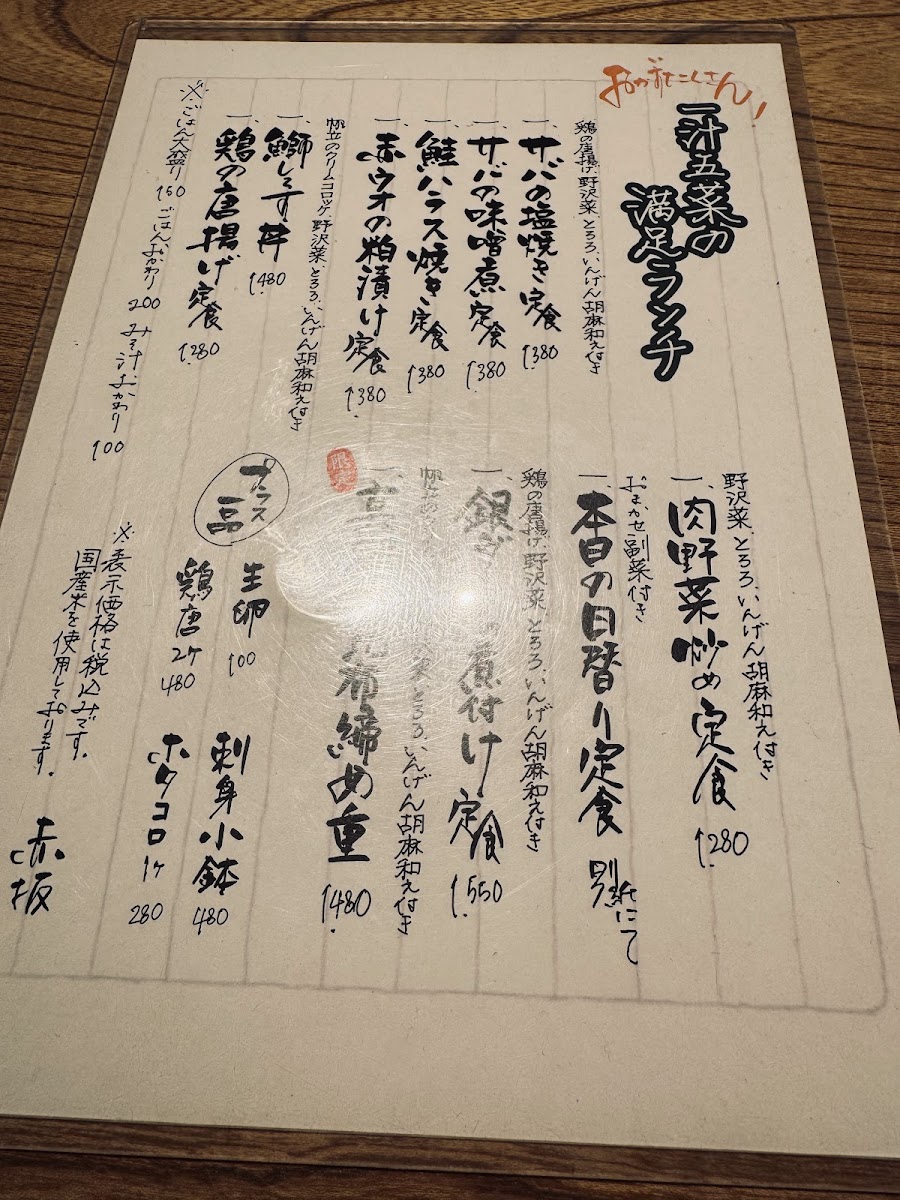 おかずたくさん!
一汁五菜の
満足ランチ
鶏の唐揚げ、野沢菜、とろろ、いんげん胡麻和え付き
一、サバの塩焼き定食 1,380
一、サバの味噌煮定食 1,380
一、鮭ハラス焼き定食 1,380
一、赤ウオの粕漬け定食 1,380
帆立のクリームコロッケ、野沢菜、とろろ、いんげん胡麻和え付き
一、鰤しらす丼 1,480
一、鶏の唐揚げ定食 1,280
※ごはん大盛り 150 ごはんおかわり 200 みそ汁おかわり 100
野沢菜、とろろ、いんげん胡麻和え付き
一、肉野菜炒め定食 1,280
おまかせ副菜付き
一、本日の日替り定食 別紙にて
鶏の唐揚げ、野沢菜、とろろ、いんげん胡麻和え付き
一、銀 煮付け定食 1,550
帆立の とろろ、いんげん胡麻和え付き
限定
一、 布締め重 1,480
プラス一品
生卵 100
刺身小鉢 480
鶏唐 2ケ 480
ホタコロ 1ケ 280
※表示価格は税込みです。
国産米を使用しております。
赤坂